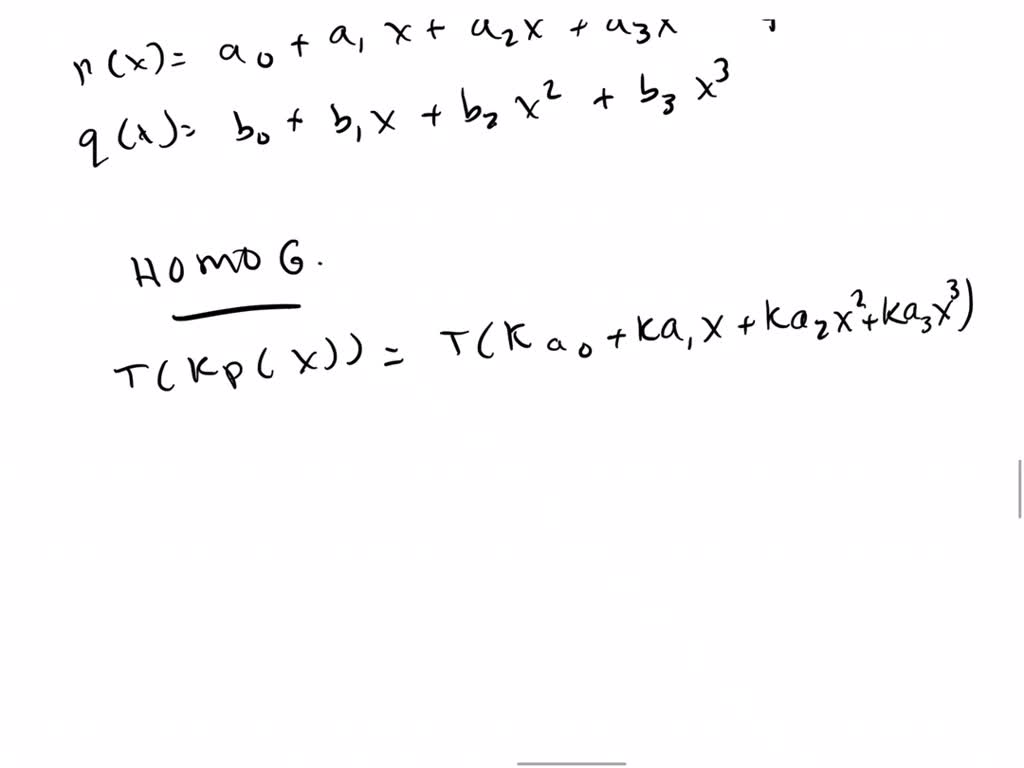 p(x)= a₀ + a₁ x + a₂x + a₃x
q(x)= b₀ + b₁x + b₂ x² + b₃ x³
HOMOG.
T(Kp(x)) = T(Ka₀ + Ka₁x + Ka₂x² + Ka₃x³)